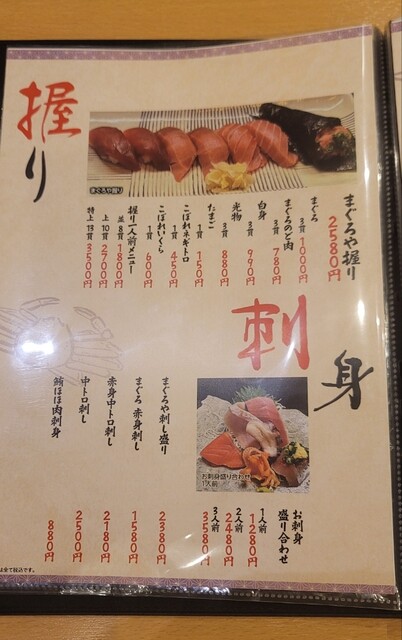 握り
まぐろや握り
まぐろや握り
2580円
まぐろ
3貫
1000円
まぐろのど肉
3貫
780円
白身
3貫
990円
光物
3貫
880円
たまご
1貫
150円
こぼれネギトロ
1貫
450円
こぼれいくら
1貫
600円
握り一人前メニュー
並 8貫
1800円
上 10貫
2700円
特上 13貫
3500円
刺身
お刺身盛り合わせ
1人前
お刺身
盛り合わせ
1人前
1280円
2人前
2480円
3人前
3580円
まぐろや刺し盛り
2380円
まぐろ 赤身刺し
1580円
赤身中トロ刺し
2180円
中トロ刺し
2500円
鮪ほほ肉刺身
880円
全て税込です。